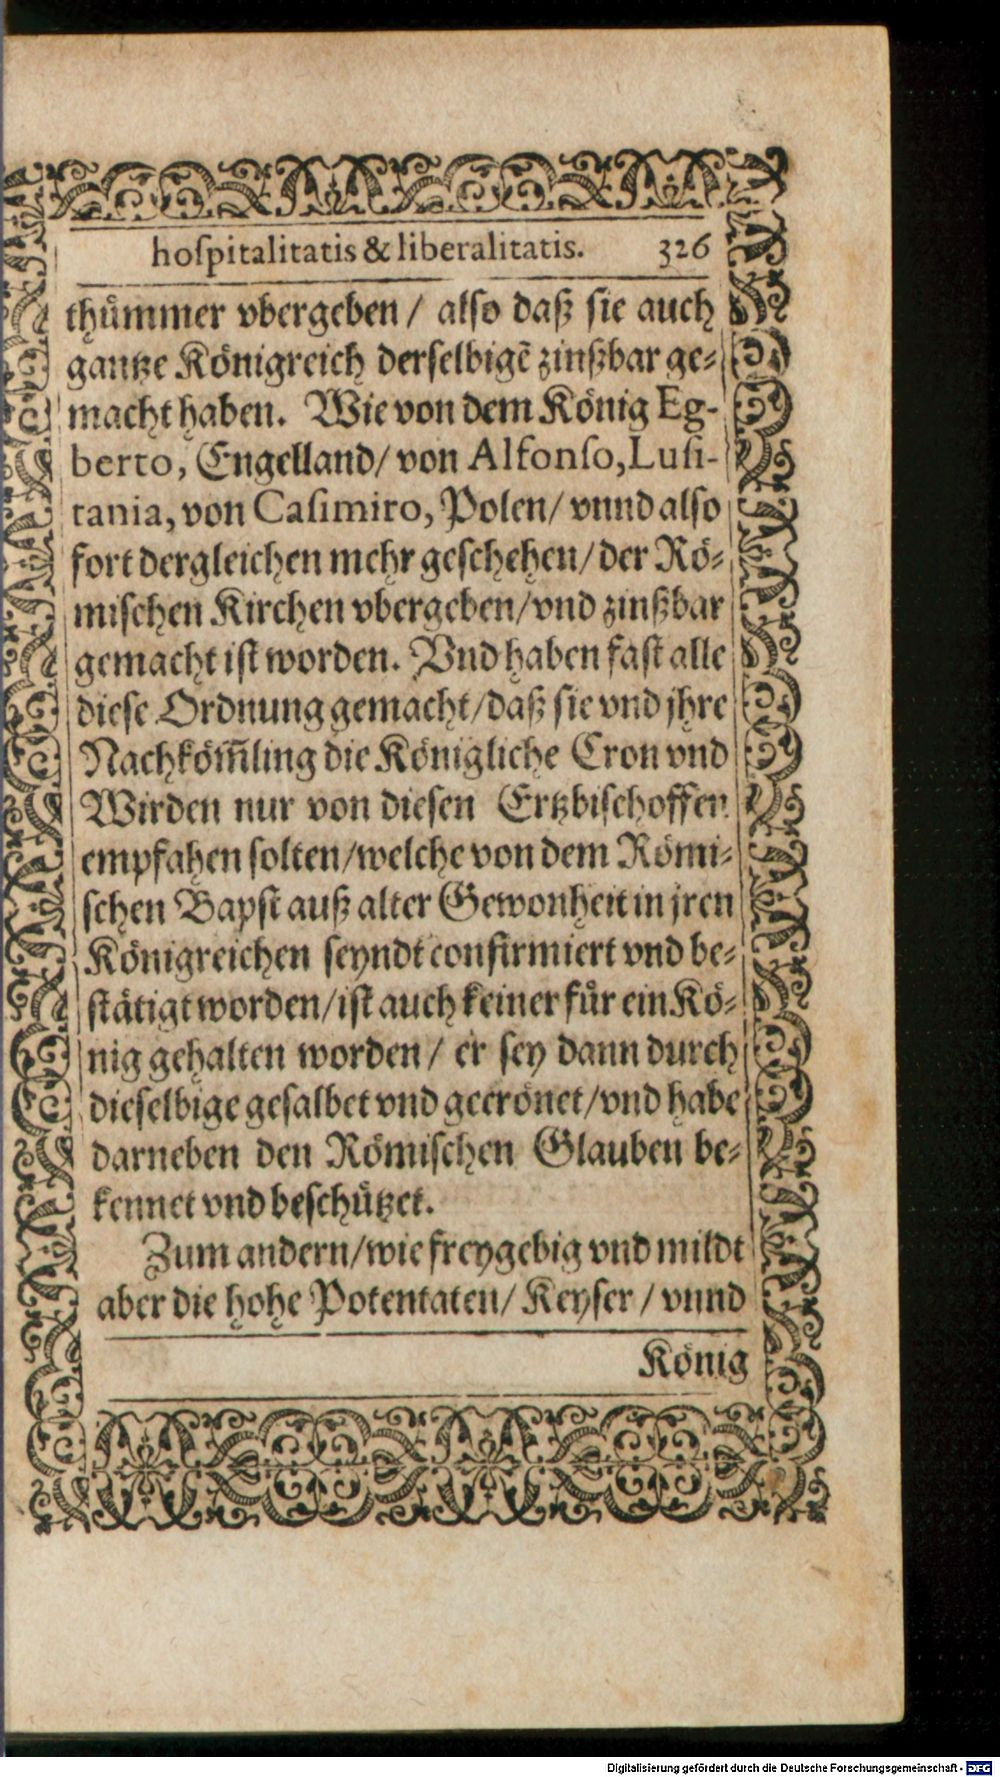 hoſpitalitatis & liberalitatis. 326
thuͤmmer vbergeben / alſo daß ſie auch
gantze Koͤnigreich derſelbigē zinßbar ge⸗
macht haben. Wie von dem Koͤnig Eg-
berto, Engelland/ von Alfonſo, Luſi-
tania, von Caſimiro, Polen/ vnnd alſo
fort dergleichen mehr geſchehen/ der Roͤ⸗
miſchen Kirchen vbergeben/ vnd zinßbar
gemacht iſt worden. Vnd haben faſt alle
dieſe Ordnung gemacht/ daß ſie vnd jhre
Nachkoͤm̃ling die Koͤnigliche Cron vnd
Wirden nur von dieſen Ertzbiſchoffen
empfahen ſolten/ welche von dem Roͤmi⸗
ſchen Bapſt auß alter Gewonheit in jren
Koͤnigreichen ſeyndt confirmiert vnd be⸗
ſtaͤtigt worden/ iſt auch keiner fuͤr ein Koͤ⸗
nig gehalten worden / er ſey dann durch
dieſelbige geſalbet vnd gecroͤnet/ vnd habe
darneben den Roͤmiſchen Glauben be⸗
kennet vnd beſchuͤtzet.
Zum andern/ wie freygebig vnd mildt
aber die hohe Potentaten/ Keyſer / vnnd
Koͤnig
Digitalisierung gefördert durch die Deutsche Forschungsgemeinschaft - DFG